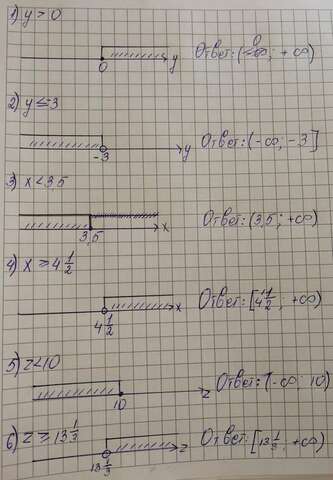 1) y > 0
0 y Ответ: (0; +∞)
2) y ≤ -3
-3 y Ответ: (-∞; -3]
3) x < 3,5
3,5 x Ответ: (3,5; +∞)
4) x ≥ 4 1/2
4 1/2 x Ответ: [4 1/2; +∞)
5) z < 10
10 z Ответ: (-∞; 10)
6) z ≥ 13 1/3
13 1/3 z Ответ: [13 1/3; +∞)